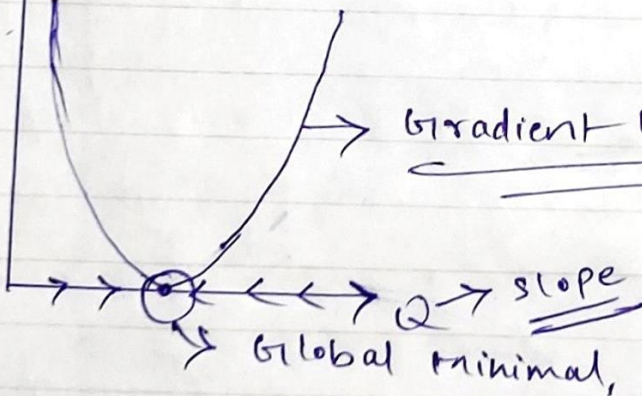 Gradient
Q → slope
Global minimal,